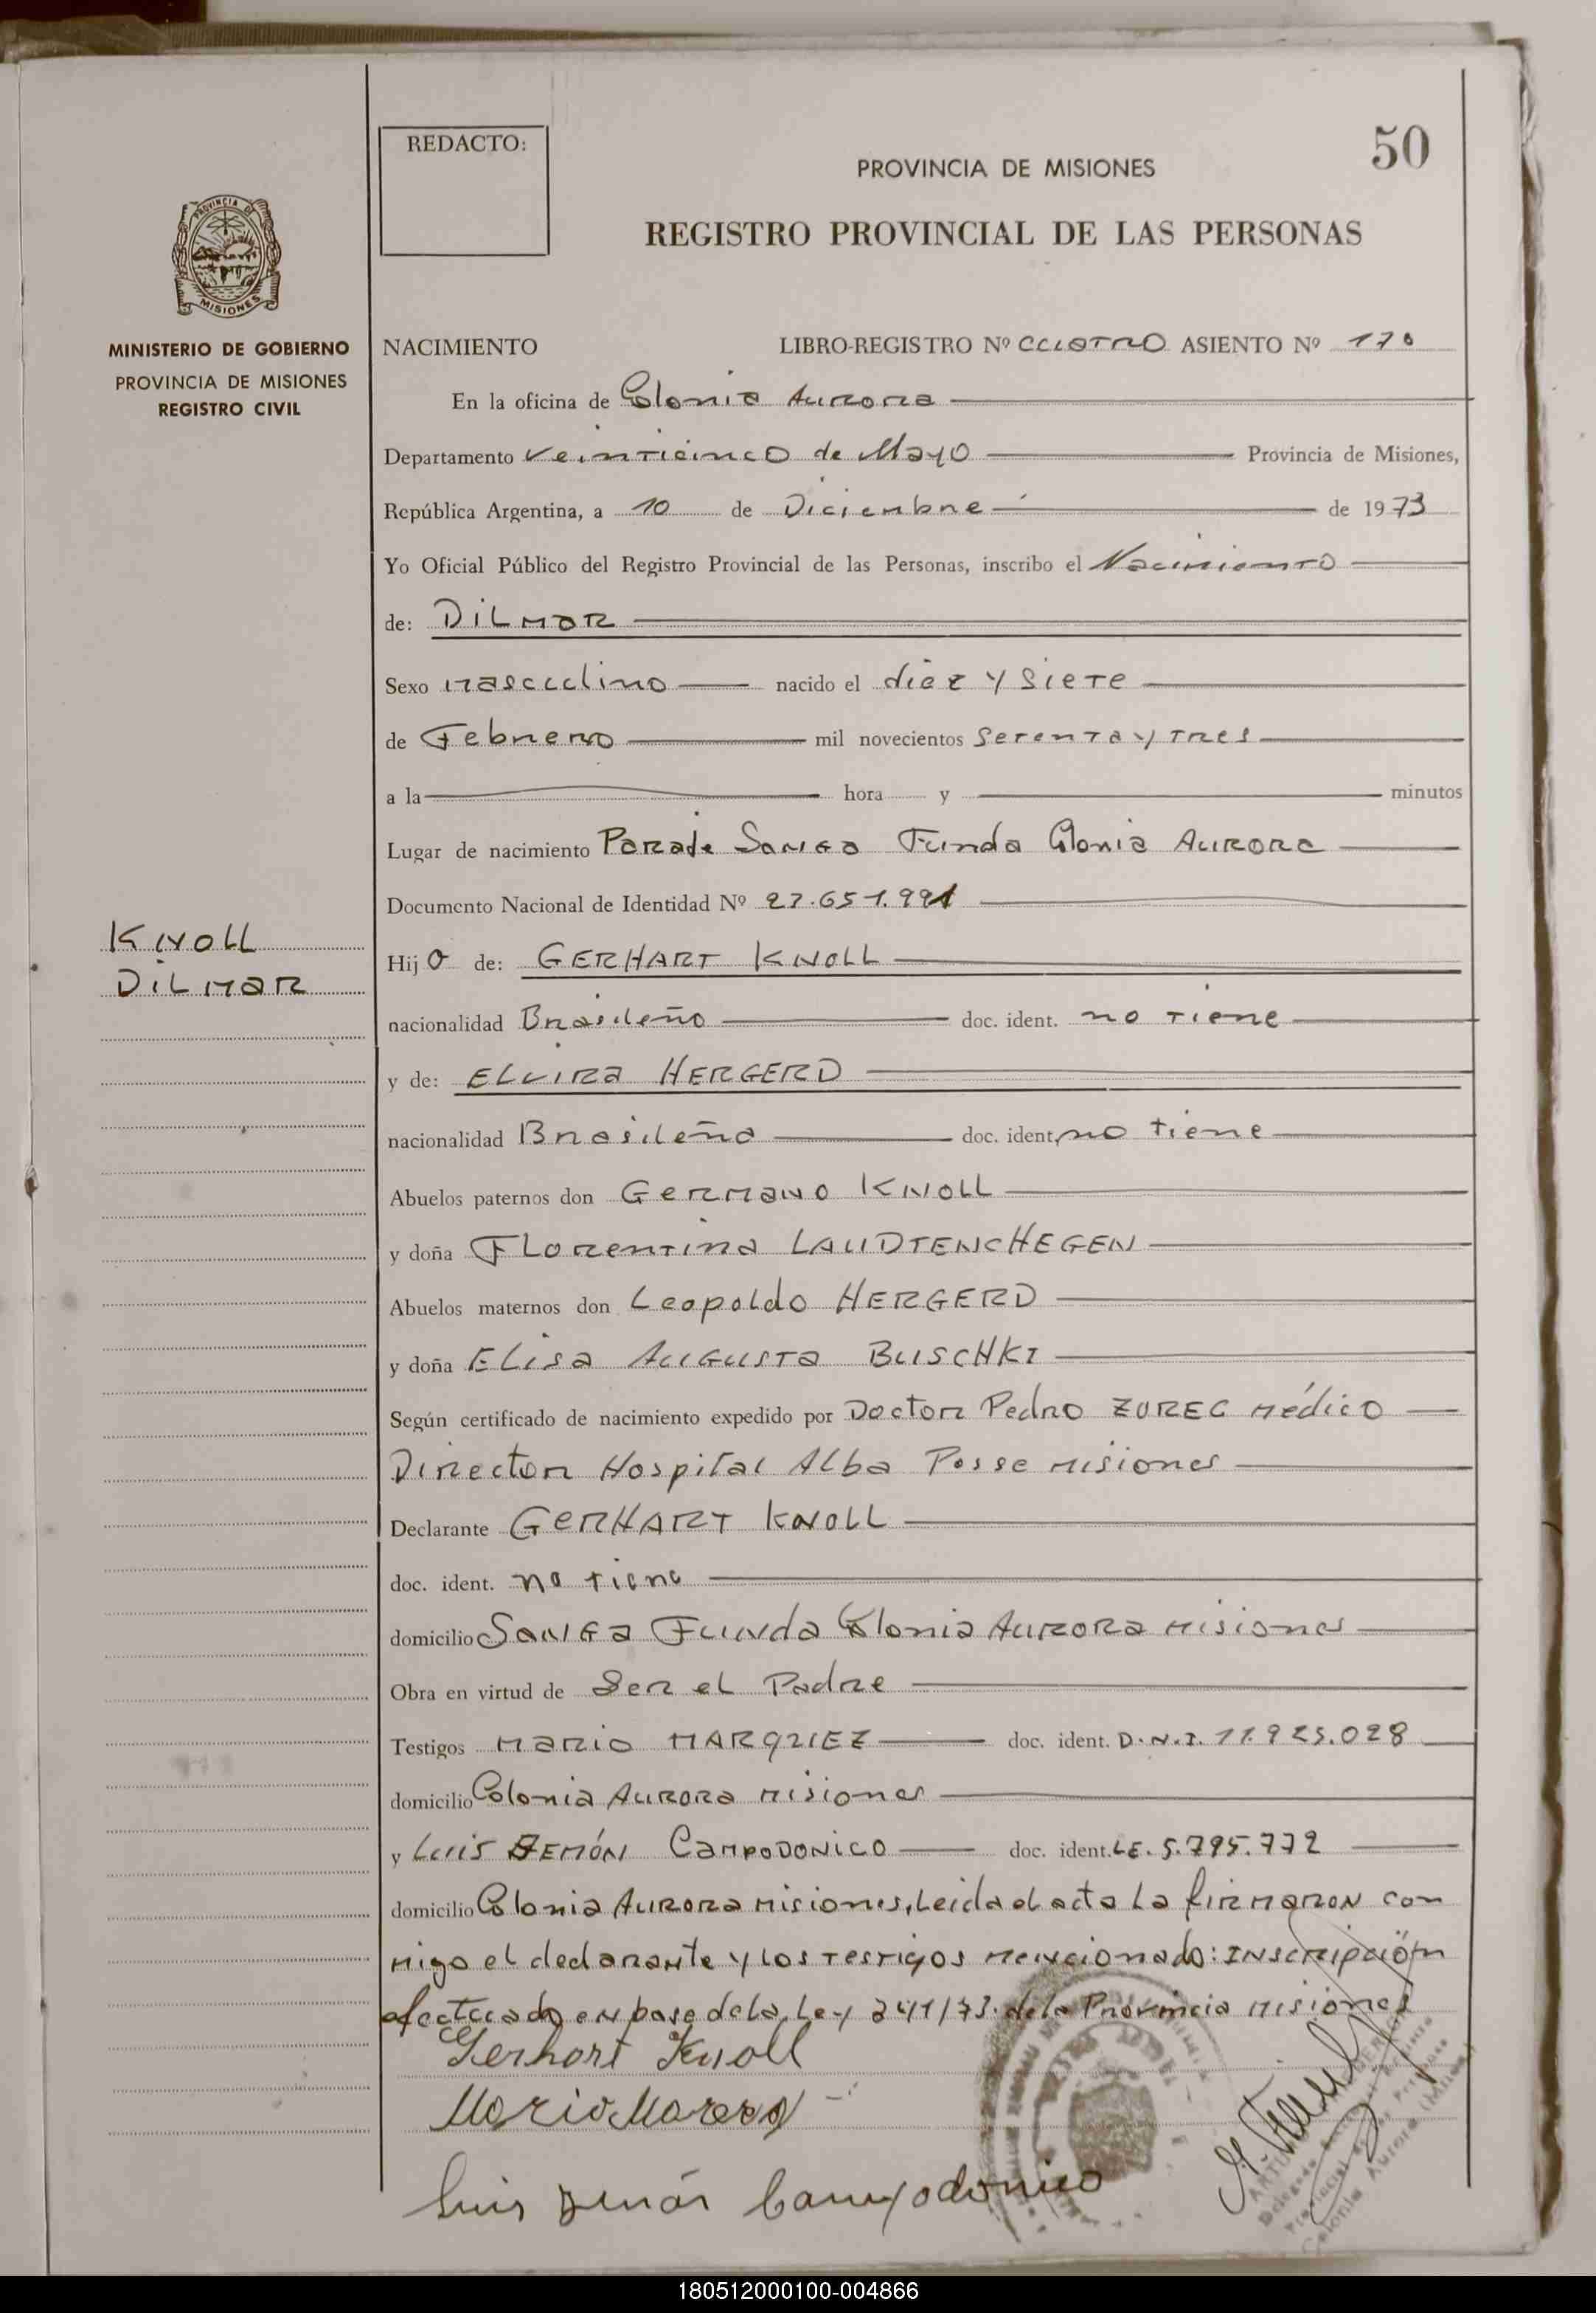 REDACTO:
50
PROVINCIA DE MISIONES
REGISTRO PROVINCIAL DE LAS PERSONAS
PROVINCIA DE
MISIONES
MINISTERIO DE GOBIERNO
PROVINCIA DE MISIONES
REGISTRO CIVIL
NACIMIENTO LIBRO-REGISTRO Nº CUATRO ASIENTO Nº 170
En la oficina de Colonia Aurora
Departamento Veinticinco de Mayo Provincia de Misiones,
República Argentina, a 10 de Diciembre de 1973
Yo Oficial Público del Registro Provincial de las Personas, inscribo el Nacimiento
de: DILMAR
Sexo masculino nacido el diez y siete
de Febrero mil novecientos setenta y tres
a la hora y minutos
Lugar de nacimiento Paraje Sanga Funda Colonia Aurora
Documento Nacional de Identidad Nº 27.651.991
KNOLL
DILMAR
Hijo de: GERHART KNOLL
nacionalidad Brasileño doc. ident. no tiene
y de: ELVIRA HERGERD
nacionalidad Brasileña doc. ident. no tiene
Abuelos paternos don Germano KNOLL
y doña Florentina LAUDTENCHEGEN
Abuelos maternos don Leopoldo HERGERD
y doña Elisa Augusta BUSCHKI
Según certificado de nacimiento expedido por Doctor Pedro ZUREC médico
Director Hospital Alba Posse misiones
Declarante GERHART KNOLL
doc. ident. no tiene
domicilio Sanga Funda Colonia Aurora misiones
Obra en virtud de Ser el Padre
Testigos Mario MARQUEZ doc. ident. D.N.I. 11.925.028
domicilio Colonia Aurora misiones
y Luis ZEMÓN CAMPODONICO doc. ident. LE. 5.795.772
domicilio Colonia Aurora misiones, Leida el acta la firmaron con
migo el declarante y los testigos mencionado: Inscripción
efectuado en base de la Ley 241/73. de la Provincia misiones
Gerhart Knoll
Luis Campodonico
Colonia Aurora
180512000100-004866